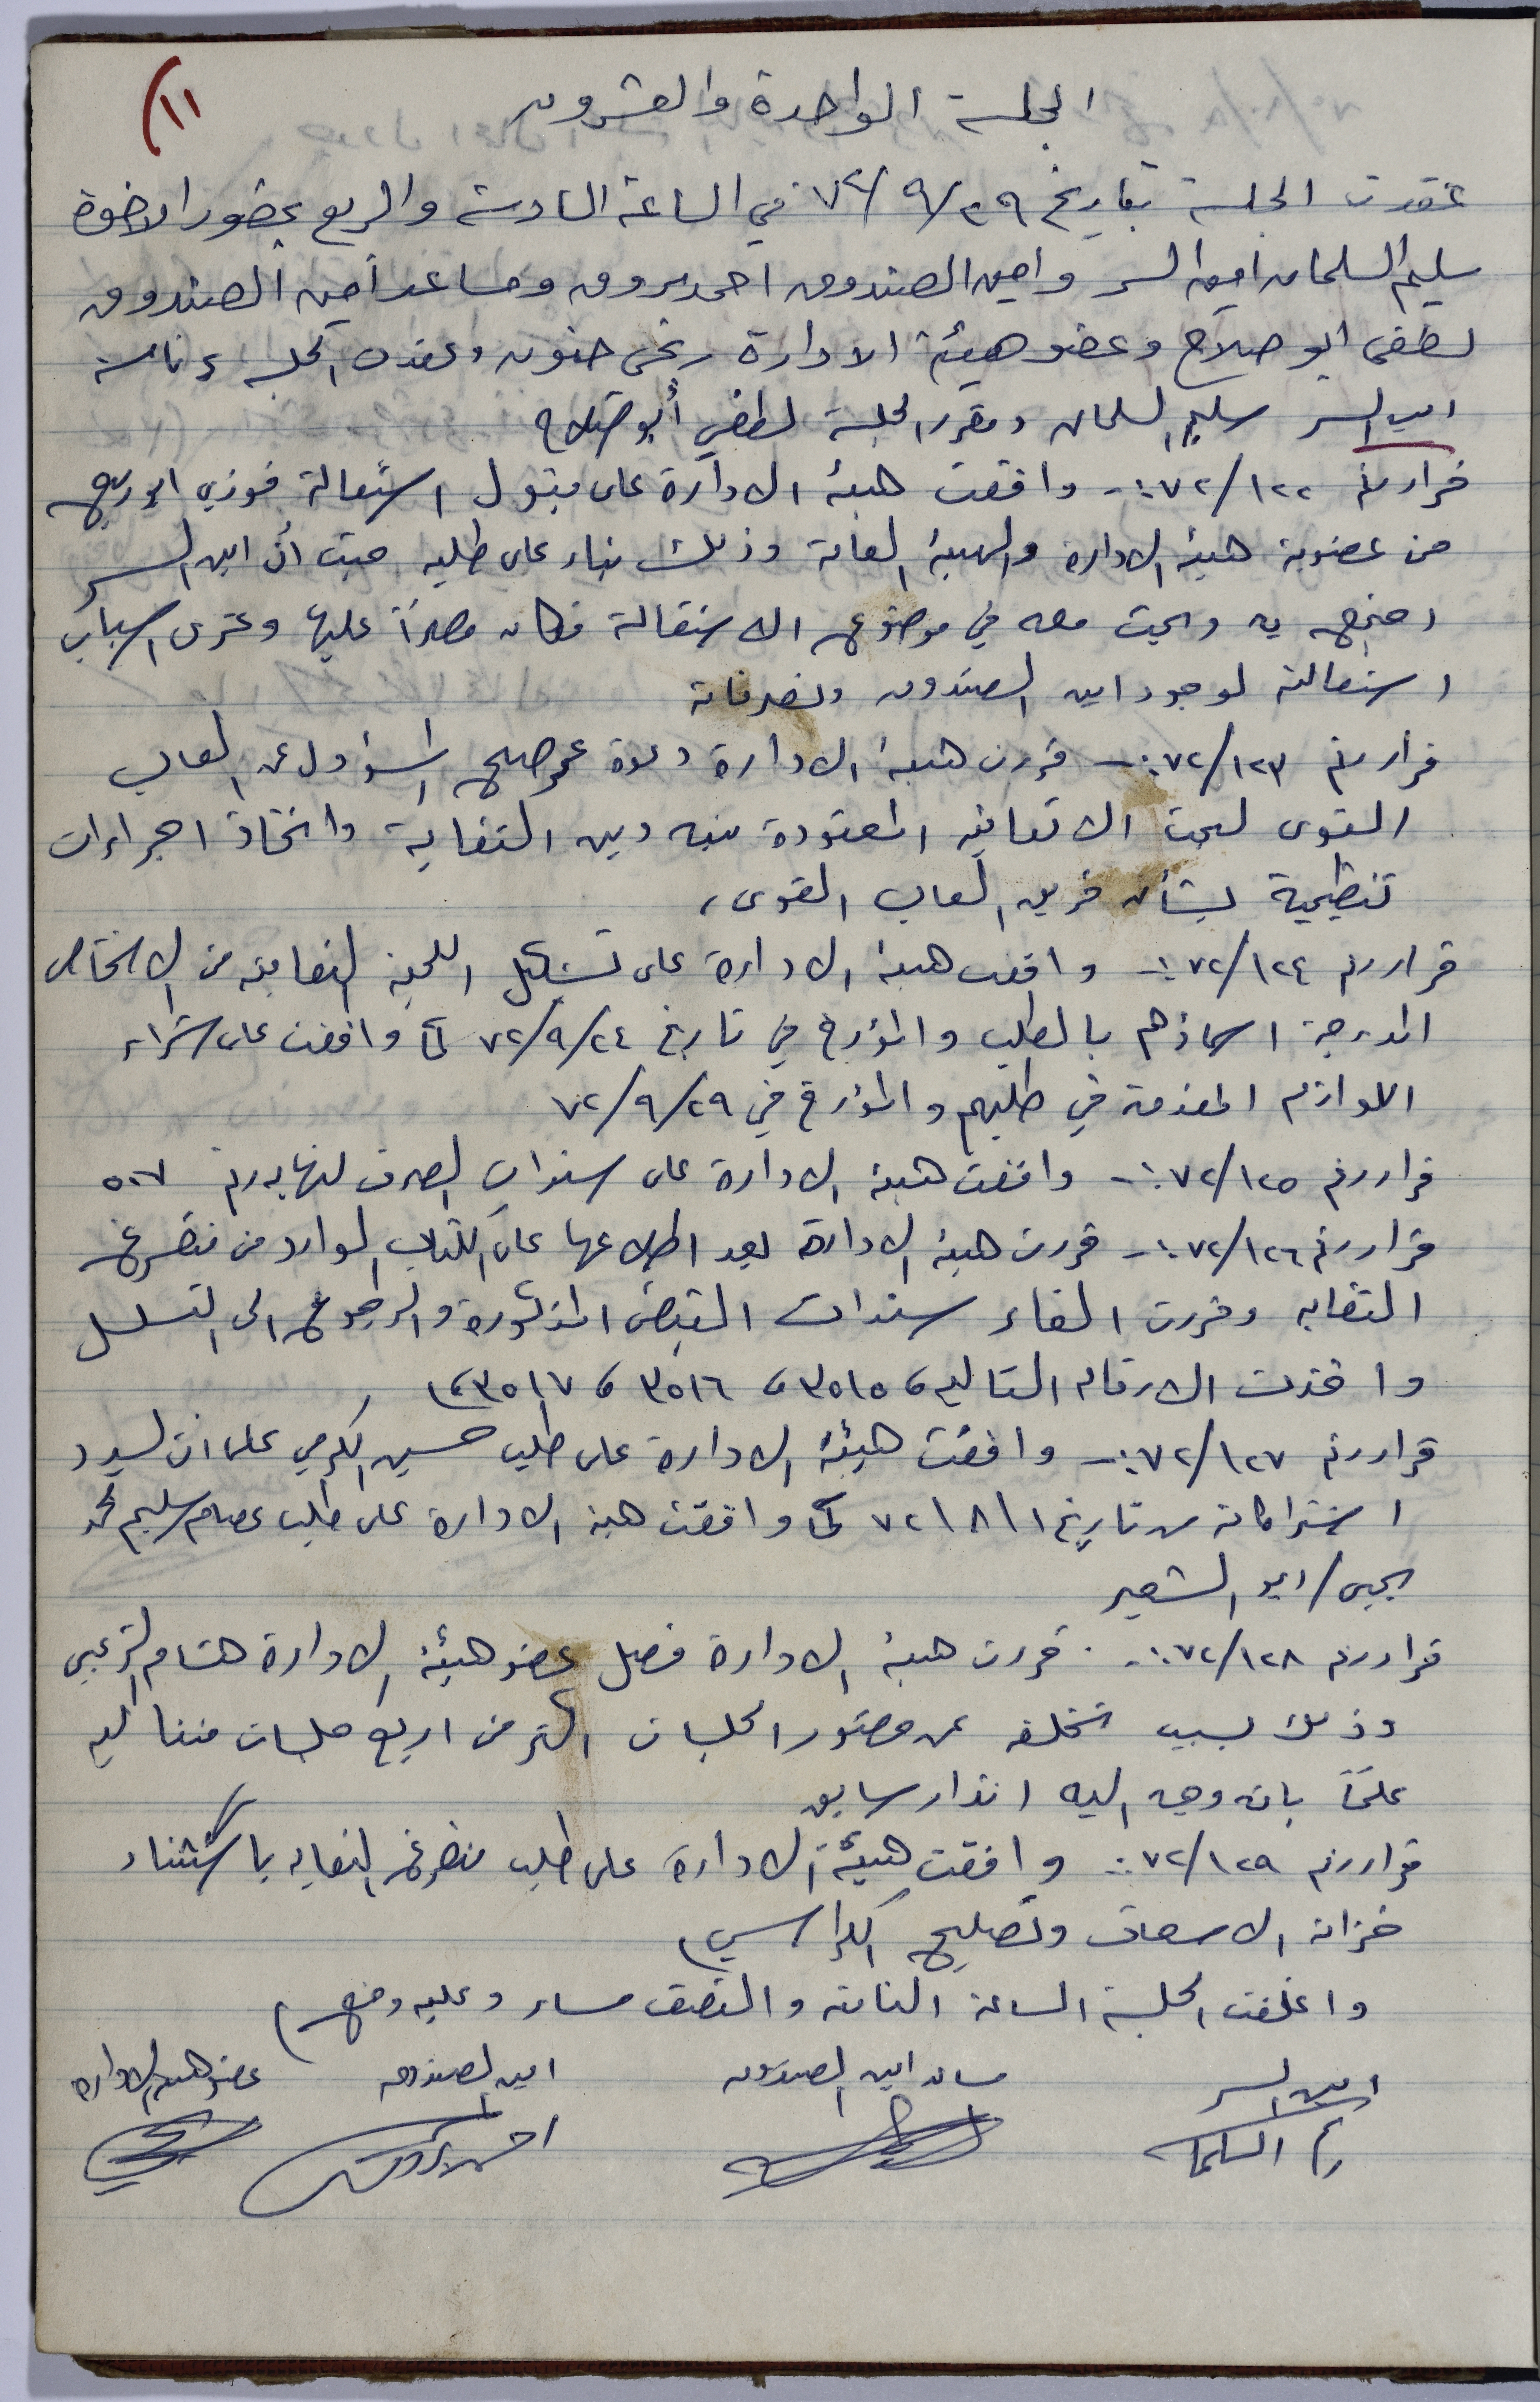 (١١
الجلسة الواحدة والعشرون
عقدت الجلسة بتاريخ ٢٩/٩/٧٢ في الساعة السادسة والربع بحضور الاخوة
سليم السلمان امين السر وامين الصندوق احمد مروق ومساعد أمين الصندوق
لطفي ابو صلاح وعضو هيئة الادارة فتحي حنون وعقدت الجلسة برئاسة
امين السر سليم السلمان ومقرر الجلسة لطفي أبو صلاح
قرار رقم ١٢٢/٧٢:- وافقت هيئة الادارة على قبول استقالة فوزي ابو ربيع
من عضوية هيئة الادارة والهيئة العامة وذلك بناء على طلبه حيث أن امين السر
اجتمع به وبحث معه في موضوع الاستقالة فكان مصراً عليها وعزى اسباب
استقالته لوجود امين الصندوق وتصرفاته
قرار رقم ١٢٣/٧٢:- قررت هيئة الادارة دعوة عمر صليح المسؤول عن العاب
القوى لبحث الاتفاقية المعقودة بينه وبين النقابة واتخاذ اجراءات
تنظيمية بشأن فريق العاب القوى،
قرار رقم ١٢٤/٧٢:- وافقت هيئة الادارة على تشكيل اللجنة النقابية من الاشخاص
المدرجة اسماؤهم بالطلب والمؤرخ في تاريخ ٢٤/٩/٧٢ كما وافقت على شراء
اللوازم المقدمة في طلبهم والمؤرخ في ٢٩/٩/٧٢
قرار رقم ١٢٥/٧٢:- وافقت هيئة الادارة على سندات الصرف لنهاية رقم ٥٠٧
قرار رقم ١٢٦/٧٢:- قررت هيئة الادارة بعد اطلاعها على الكتاب الوارد من متفرغ
النقابة وقررت الغاء سندات القبض المذكورة والرجوع الى التسلسل
واخذت الارقام التالية، ٣٥١٥، ٣٥١٦، ٣٥١٧،
قرار رقم ١٢٧/٧٢:- وافقت هيئة الادارة على طلب حسين الكرمي على ان يسدد
اشتراكاته من تاريخ ١/٨/٧٢ كما وافقت هيئة الادارة على طلب عصام سليم محمد
يحيى/ابو الشعير
قرار رقم ١٢٨/٧٢:- قررت هيئة الادارة فصل عضو هيئة الادارة هشام الزعبي
وذلك بسبب تخلفه عن حضور الجلسات اكثر من اربع جلسات متتالية
علماً بانه وجه اليه انذار سابق
قرار رقم ١٢٩/٧٢: وافقت هيئة الادارة على طلب متفرغ النقابة باستثناء
خزانة الاسعاف وتصليح الكراسي
واغلقت الجلسة الساعة الثامنة والنصف مساء وعليه وقع
امين السر مساعد امين الصندوق امين الصندوق عضو هيئة الادارة
سليم السلمان